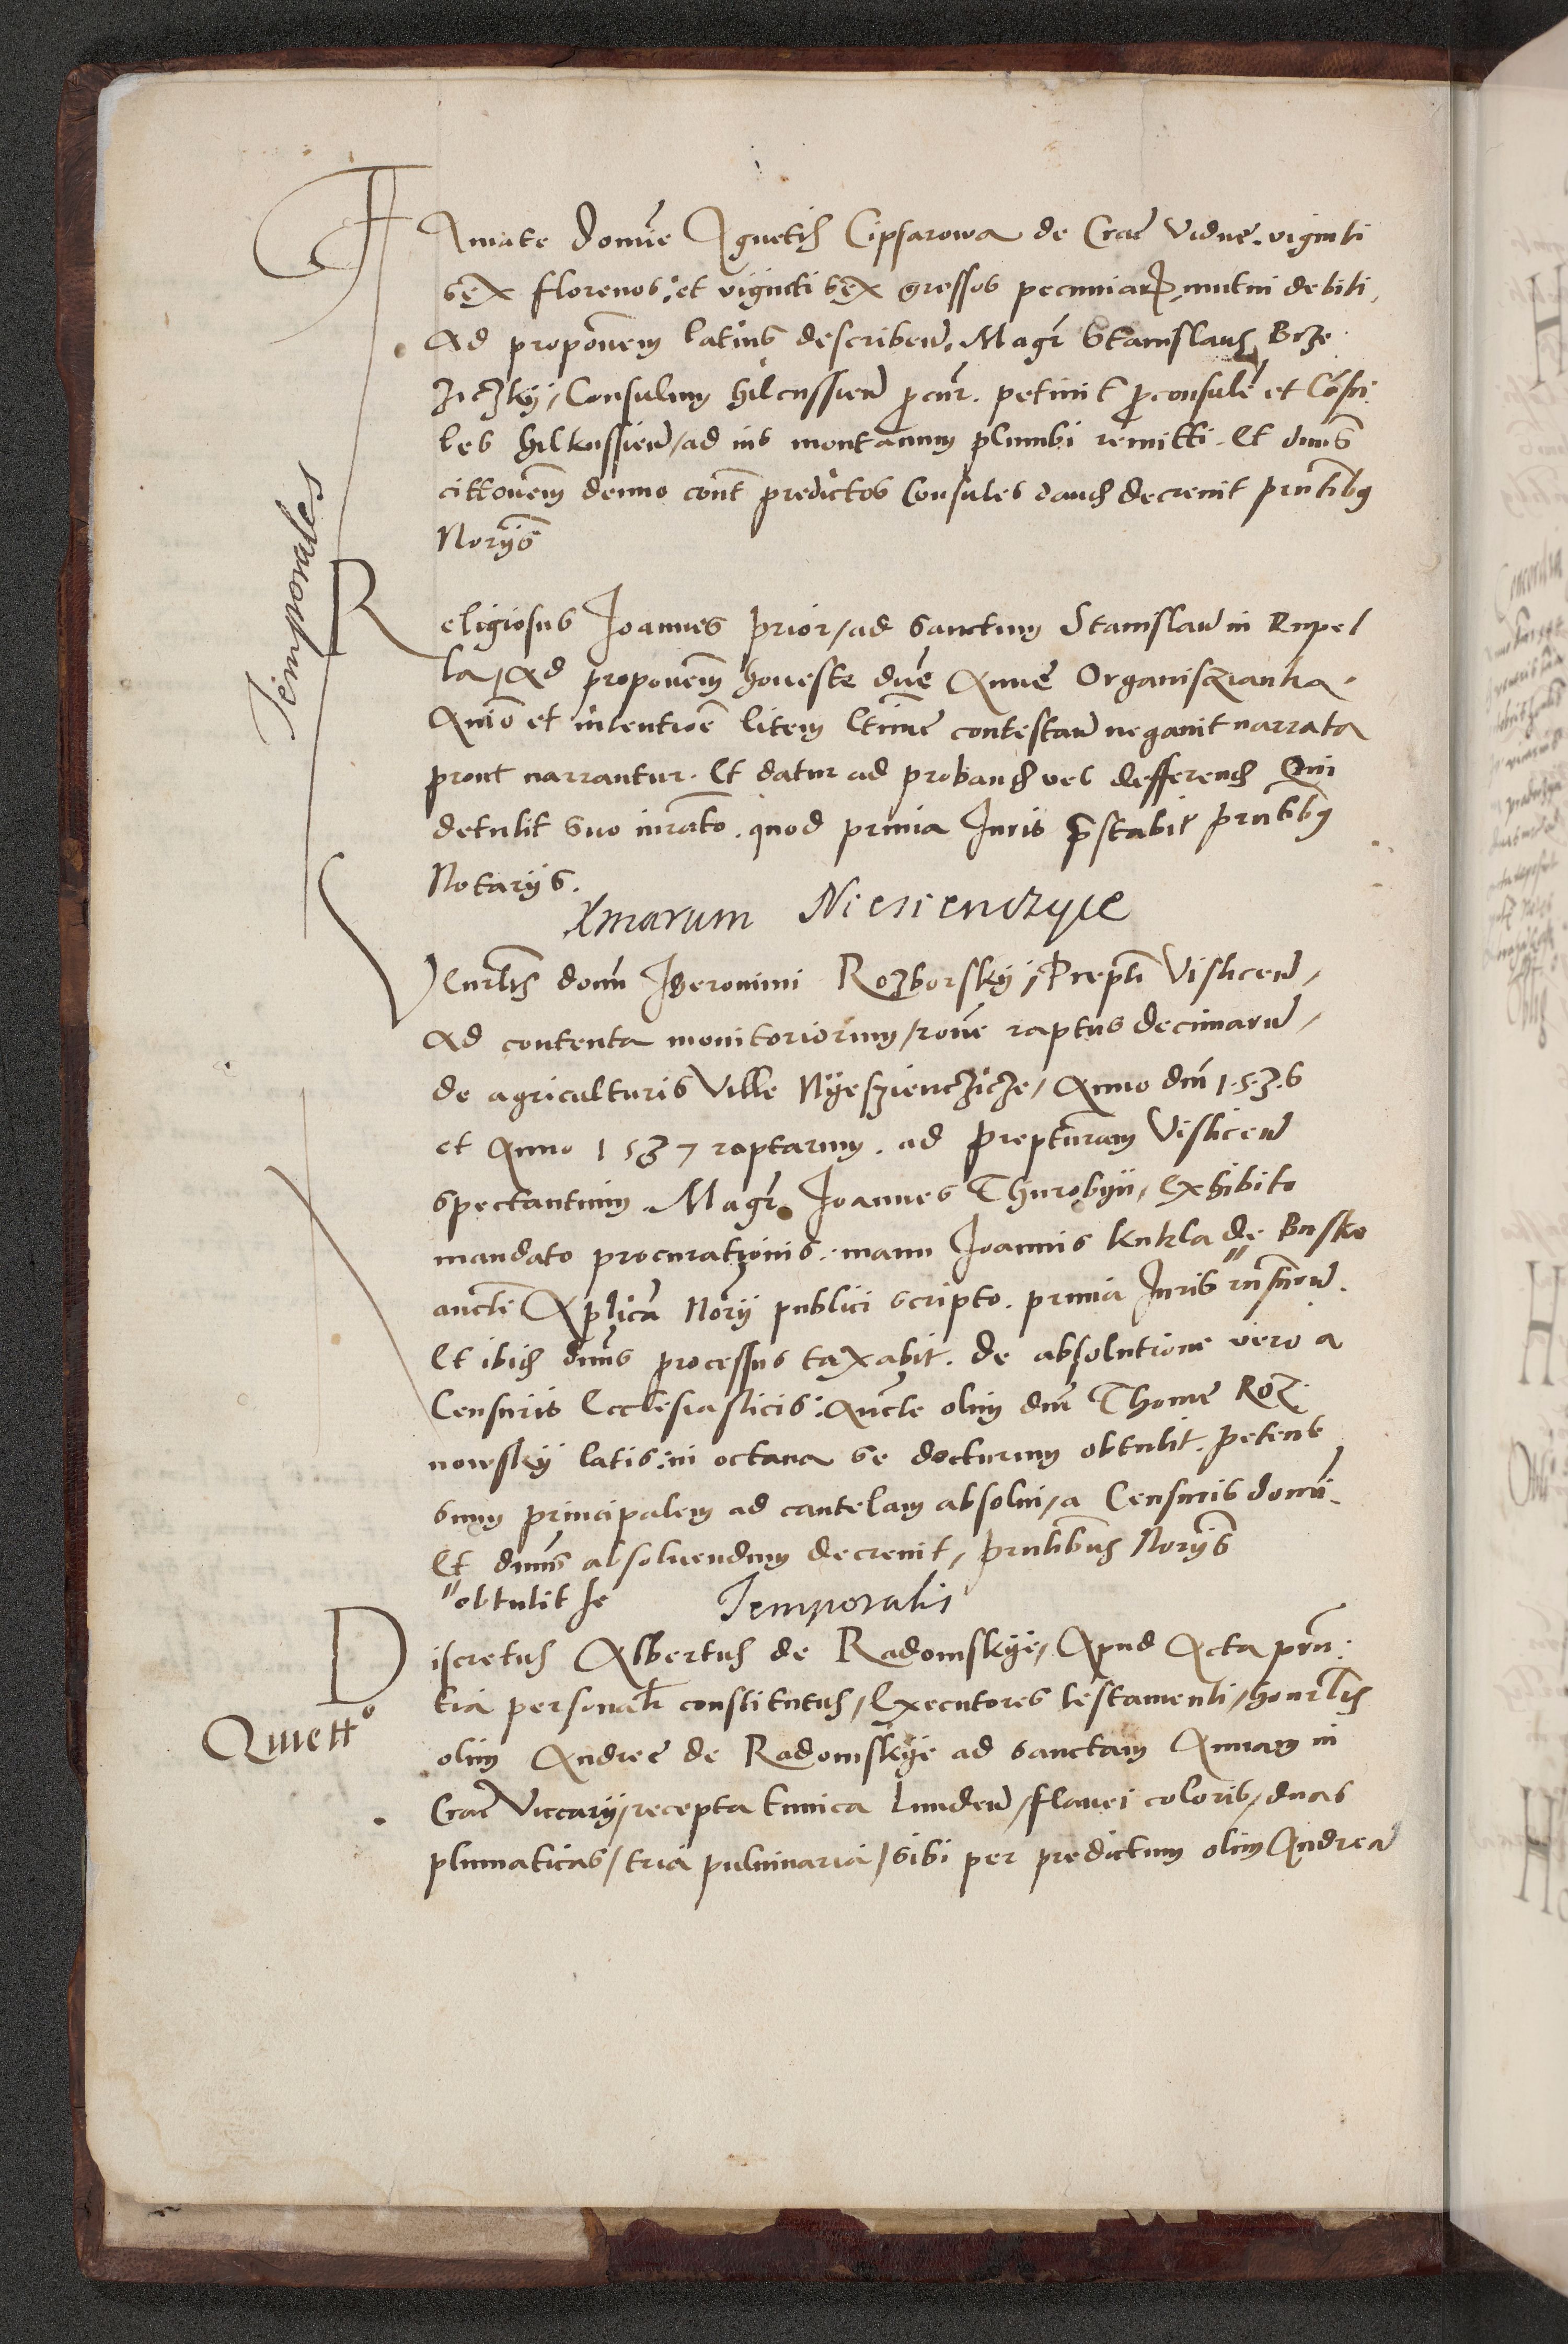 Famate Domine Agnetis Cipsarowa de Crac Vidue. viginti
sex florenos: et viginti sex grossos pecuniarum mutui debiti,
Ad proponem latius describen. Magr Stanislaus Brze
zyczky, Consulum hilcussien procur. petiuit proconsulem et Consu
les hilkussien, ad ius montanum plumbi remitti. Et dnus
cittonem denuo cont predictos Consules dand decreuit prntibus
Noriis
Temporales
Religiosus Joannes Prior, ad Sanctum Stanislaum in Rupel
la, Ad proponem honeste dne Anne Organisczanka.
Animo et intentione litem ltime contestan negauit narrata
prout narrantur. Et datur ad proband vel defferend Qui
detulit suo iurato. quod primia Juris prestabit prntibus
Notariis.
Xmarum Niesienczyce
Venerlis domini Iheronimi Rozborsky, Prepti Vislicen,
Ad contenta monitoriorum, rone raptus decimarum,
de agriculturis Ville Nyeszienczicze, Anno dni 1.5.3.6
et Anno 1537 raptarum. ad prepturam Vislicen
spectantium. Magr Joannes Thurobyn, Exhibito
mandato procurationis. manu Joannis kukla de Busko
aucte Aplica Norii publici scripto. primia Juris " rnsurum.
Et ibid dnus processus taxabit. de absolutione vero a
Censuris Ecclesiasticis: Aucte olim dni Thome Roz
nowsky latis: in octaua se docturum obtulit. petens
suum principalem ad cautelam absolui, a Censuris domi
Et dnus absoluendum decreuit, prntibus Noriis
" obtulit se
Temporalis
Discretus Albertus de Radomskye, Apud Acta prn
tia personalr constitutus, Executores testamenti, honorlis
Quiett°
olim Andree de Radomskye ad sanctam Annam in
Crac Viccarii, recepta tunica lunden, flauei coloris, duas
plumaticas, tria puluinaria, sibi per predictum olim Andrea